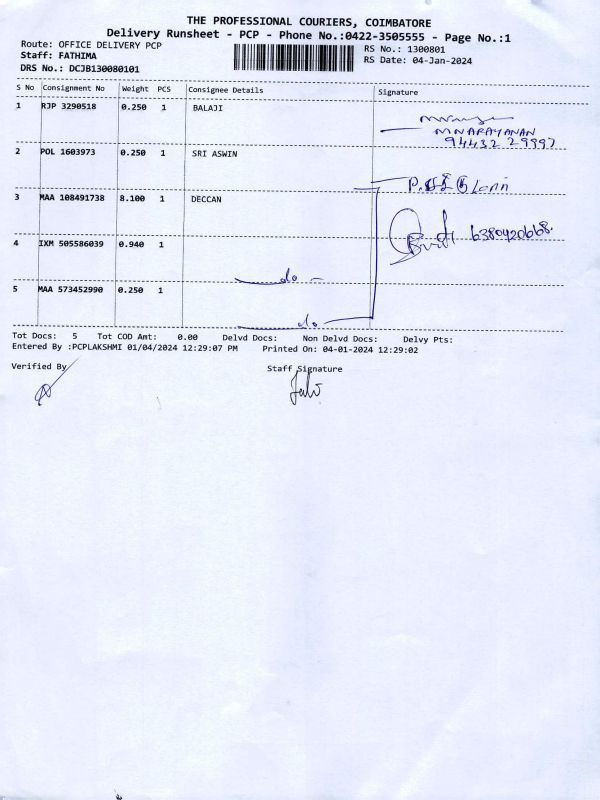 THE PROFESSIONAL COURIERS, COIMBATORE
Delivery Runsheet - PCP - Phone No.:0422-3505555 - Page No.:1
Route: OFFICE DELIVERY PCP
RS No.: 1300801
Staff: FATHIMA
RS Date: 04-Jan-2024
DRS No.: DCJB130080101
S No Consignment No Weight PCS Consignee Details Signature
1 RJP 3290518 0.250 1 BALAJI
MNARAYANAN
94432 29997
2 POL 1603973 0.250 1 SRI ASWIN
3 MAA 108491738 8.100 1 DECCAN
6380420668.
4 IXM 505586039 0.940 1
do
5 MAA 573452990 0.250 1
do
Tot Docs: 5 Tot COD Amt: 0.00 Delvd Docs: Non Delvd Docs: Delvy Pts:
Entered By :PCPLAKSHMI 01/04/2024 12:29:07 PM Printed On: 04-01-2024 12:29:02
Verified By Staff Signature